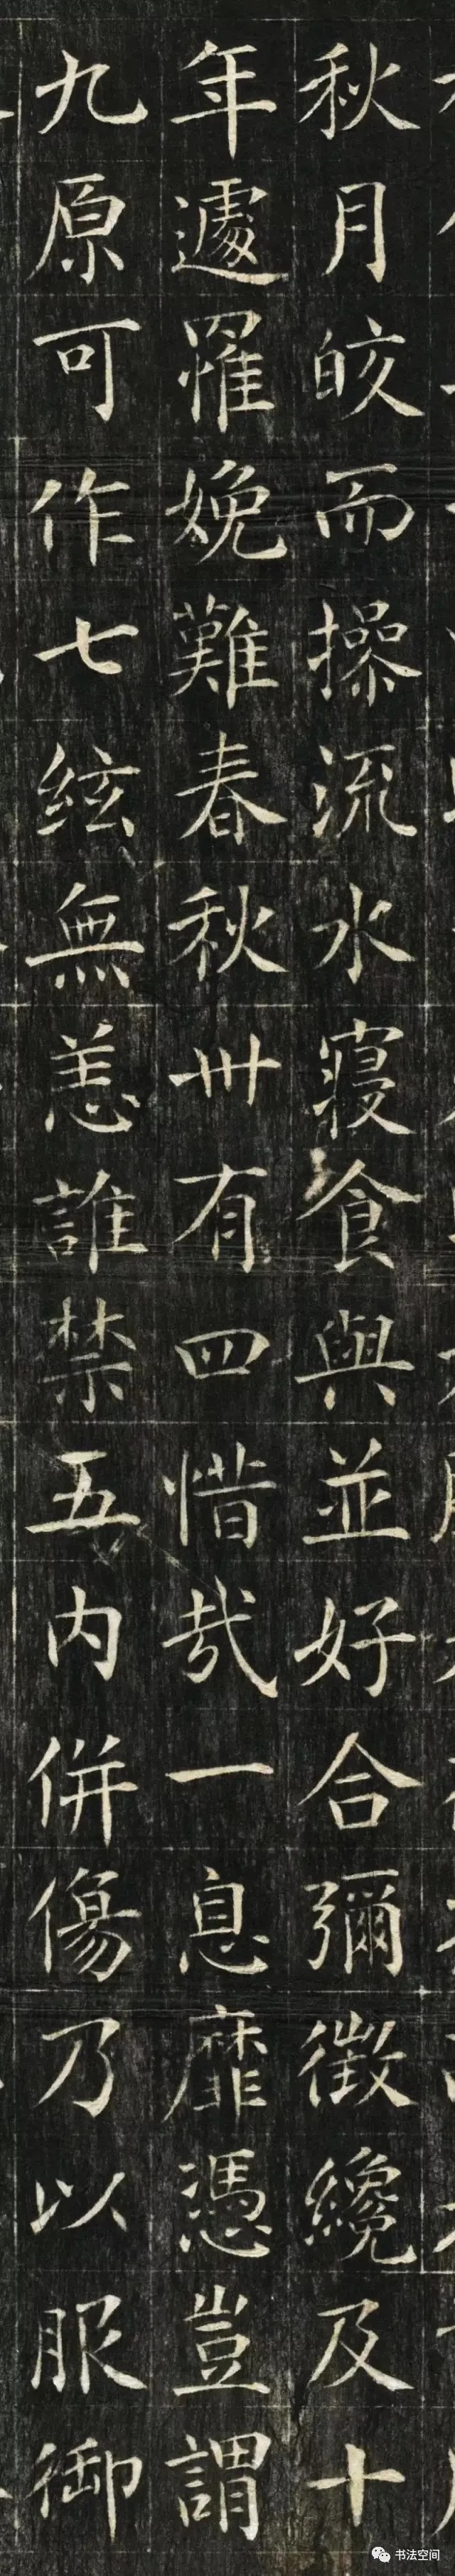 秋月皎而操流水寝食與並好合彌徵纔及十
年遽罹娩難春秋卌有四惜哉一息靡憑豈謂
九原可作七絃無恙誰禁五内併傷乃以服御
书法空间